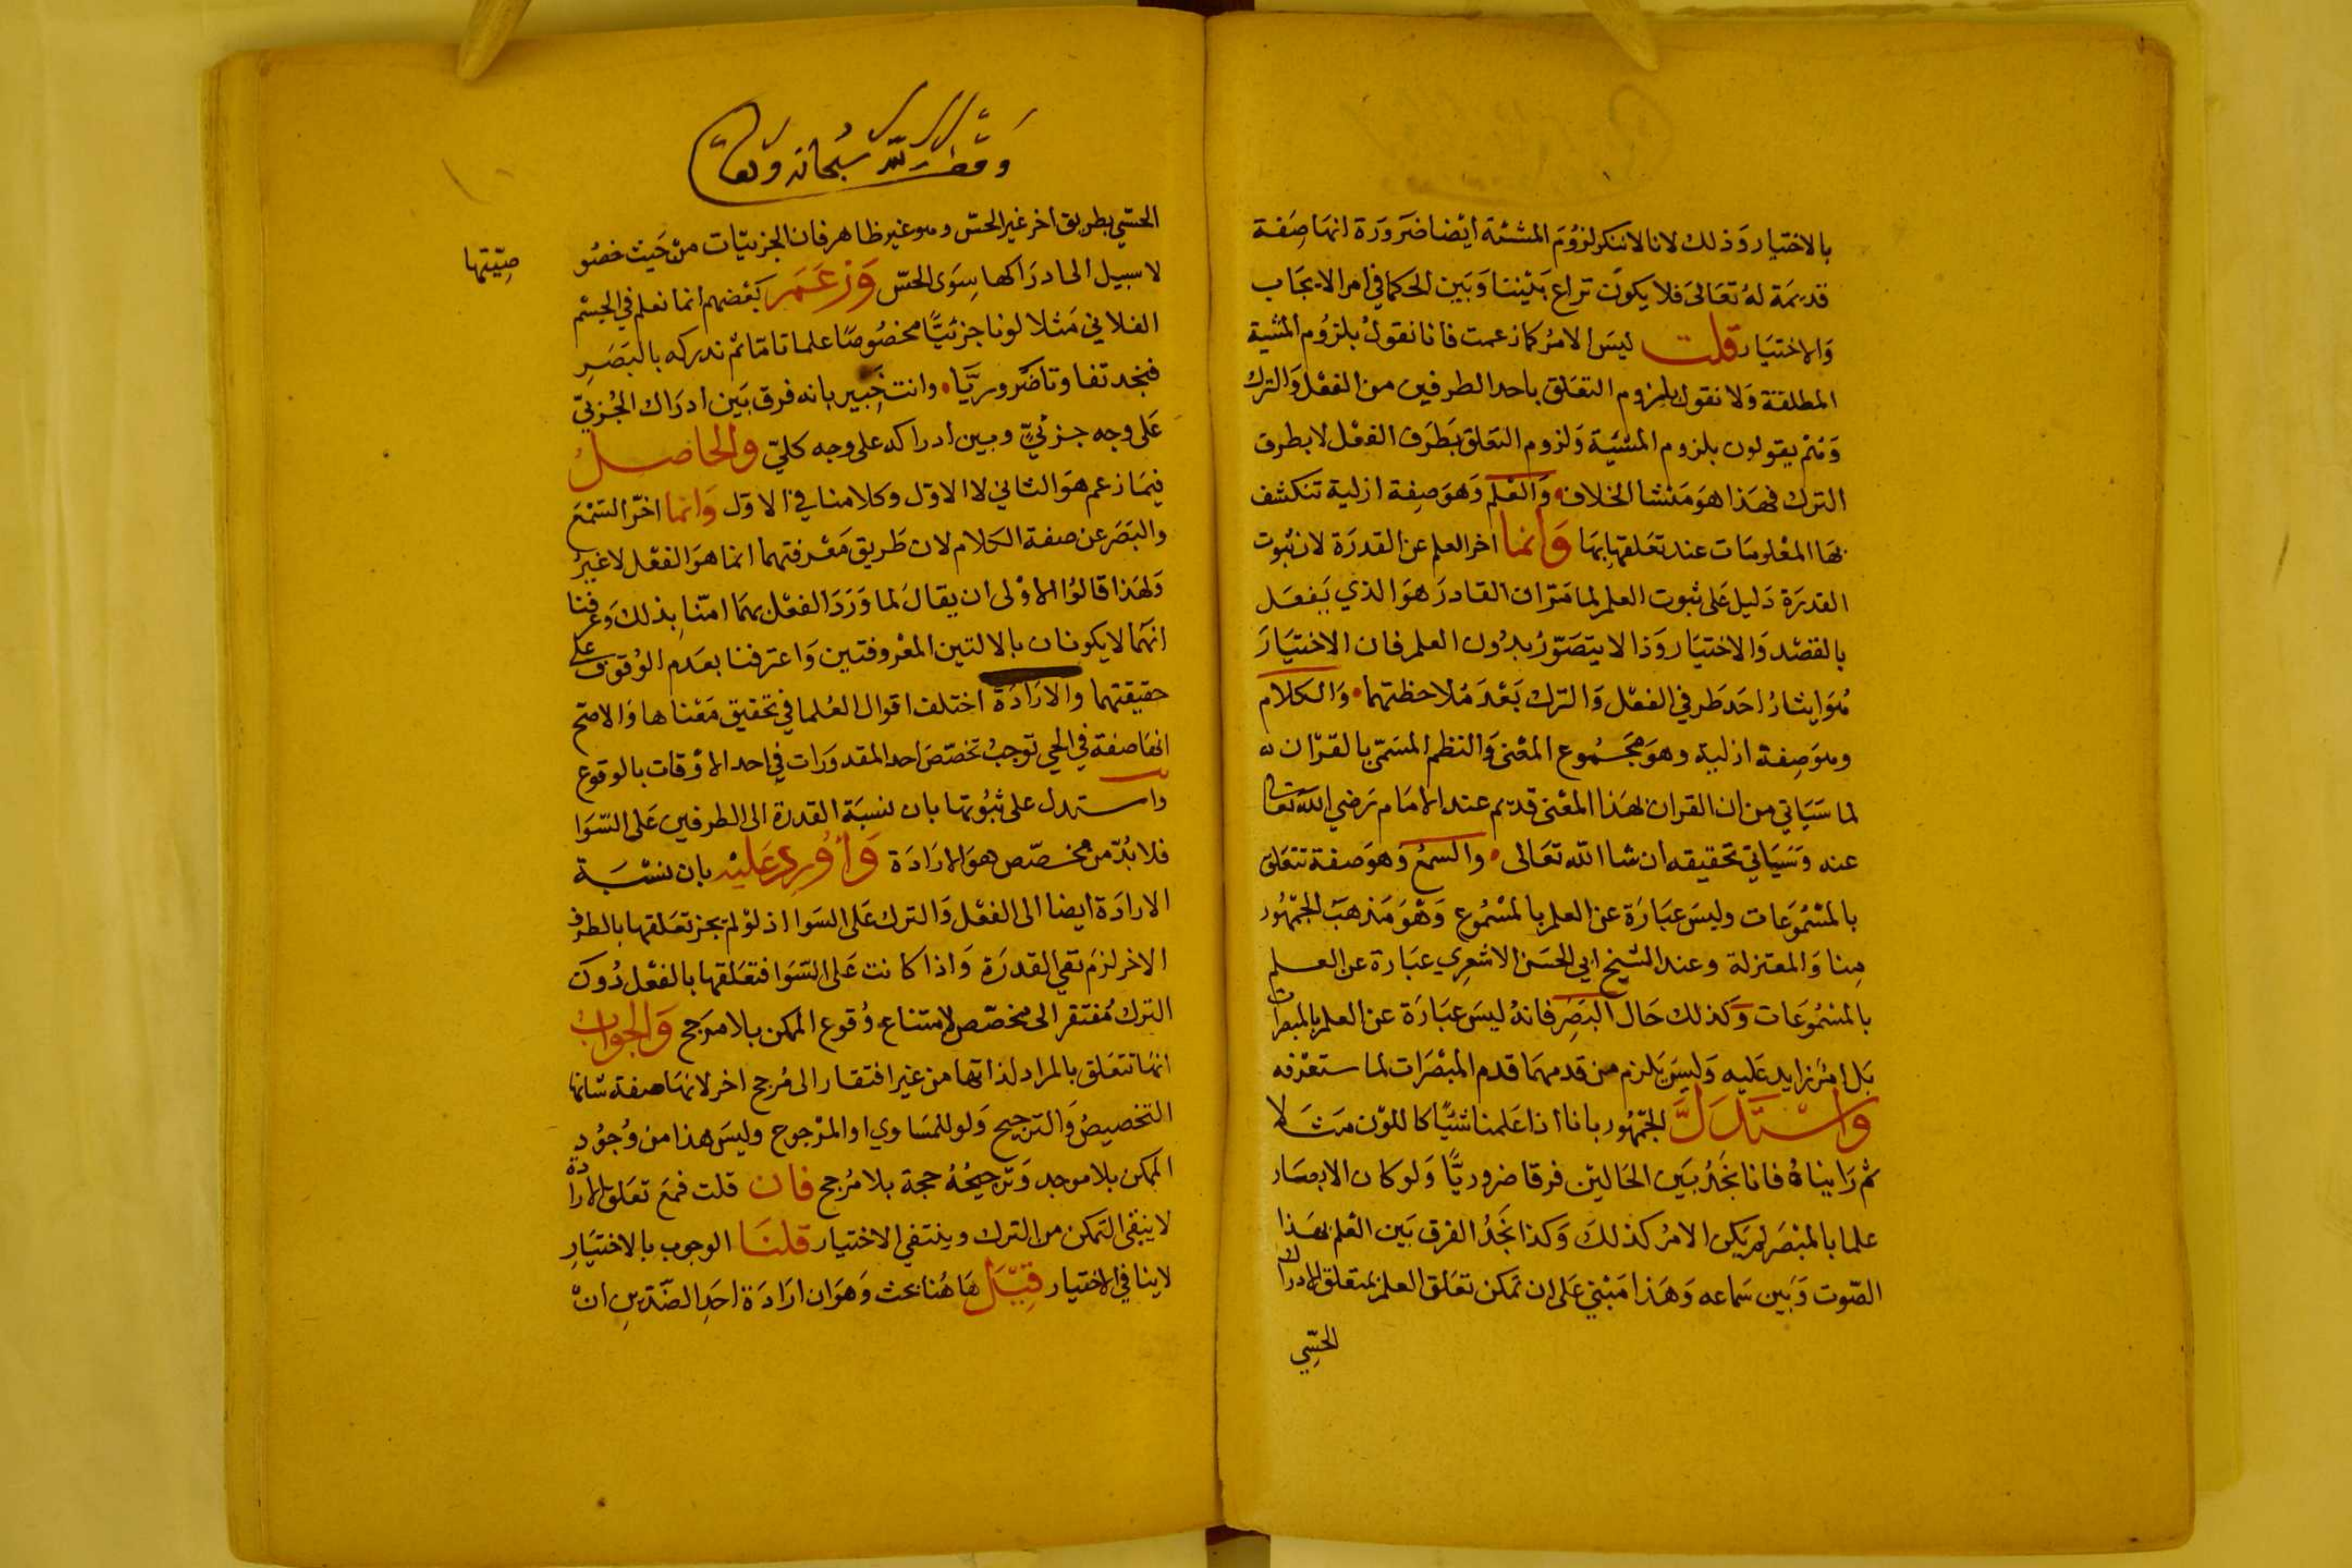 بالاختيار وَذلك لانا لاننكر لزُومَ المشئة ايْضا ضَروَرَة انهَا صِفة
قديمَة لهُ تعَالىَ فلا يكونَ نزاع بَيْننا وَبَين الحكما في امر الايجَاب
وَالاختيَار قلت ليسَ الامرُ كما زعمت فانا نقولُ بلزوُم المشية
المطلقة وَلا نقول بلزوم التعَلق باحد الطرفين من الفعْل وَالترك
وَهُمْ يقولون بلزوم المشيْة وَلزوم التعَلق بَطَرَف الفعْل لا بطرف
الترك فهَذا هوَ مَنشا الخلاف وَالعْلم وَهوَ صِفة ازلية تنكشف
بهَا المعْلومَات عند تعَلقها بهَا وَانما اخر العلم عن القدرَة لان ثبوت
القدرَة دَليل عَلى ثبوت العلم لما مَرّ ان القادرَ هوَ الذي يَفعَل
بالقصْد وَالاختيَار وَذا لا يتصَوّرُ بدُون العلم فان الاختيَارَ
هُوَ ايثارُ احَد طَرفي الفعْل وَالترك بَعْدَ مُلاحظتهما وَالكلام
وهوَ صِفة ازلية وهوَ مَجمُوع المعْنى وَالنظم المسَمّى بالقرْان له
لما سَيَاتي من ان القران بهَذا المعْنى قديم عند الامَام رَضي الله تعَالى
عنه وَسَيَاتي تحقيقه ان شا الله تعَالى والسمعُ وَهوَ صفة تتعَلق
بالمسْمُوعَات وليسَ عبَارَة عن العلم بالمسْمُوع وَهْوَ مَذهبَ الجمْهُور
مِنا وَالمعتزلة وعند الشيخ ابي الحسَن الاشعِري عبَارة عن العلم
بالمسْمُوعَات وَكذلك حَال البَصَر فانهُ ليسَ عبَارَة عن العلم بالمبصرات
بَل امْر زايد عَليه وَليسَ يَلزم من قدمهمَا قدم المبْصَرات لما ستعْرفه
وَاسْتدَلَّ الجمْهُور بانا اذا عَلمنا شئيًا كاللوْن مَثلا
ثم رَايناهُ فانا نجَدُ بَين الحَالتين فرقا ضروريًّا وَلو كان الابصَار
علما بالمبْصَر لم يَكن الامرُ كذلكَ وَكذا نجَدُ الفرق بَين العْلم بهَذا
الصّوت وَبَين سَماعه وَهَذا مَبْني عَلى ان تمكن تعَلق العلم بمتعلق الادراك
الحسِّي
وقف لله سبحانه وتعالى
الحسّي بطريق اخر غير الحسّ وهو غير ظاهر فان الجزئيّات منْ حَيث خصُو
صِيّتها
لا سبيل الى ادرَاكها سِوَى الحسّ وَزعَمَ بَعْضهم انما نعلم في الجسْم
الفلاني مَثلا لونا جزئيًّا مخصُوصًا علما تامّا ثمْ ندركه بالبَصَر
فنجد تفاوتا ضَروريَّا وانت خَبير بانه فرق بَين ادرَاك الجُزئيّ
عَلى وجه جزئيٍّ وبين ادراكه على وجه كليّ والحاصل
فيمَا زعم هوَ الثاني لا الاوّل وكلامنا في الاوّل وَانما اخّر السَّمْعَ
والبَصَر عن صفة الكلام لان طَريق مَعْرفتهما انما هوَ الفعْل لا غيرُ
وَلهَذا قالوُا الاوْلى ان يقالَ لما وَرَدَ الفعْل بهمَا امنّا بذلك وَعرفنا
انهَما لا يكونان بالالتين المعْروفتين وَاعترفنا بعَدم الوُقوف على
حقيقتهما والارَادَة اختلف اقوال العُلما في تحقيق مَعْناها وَالاصح
انهَا صفة في الحي توجبُ تخصّصَ احد المقدورَات في احد الاوْقات بالوقوع
واستدل على ثبوُتها بان نسبَة القدرَة الى الطرفين عَلى السّوَا
فلا بُدّ من مخصّص هوَ الارَادَة وَاوُردَ عَليْه بان نسْبَة
الارادَة ايضا الى الفعْل وَالترك عَلى السَوا اذ لوْ لم يجز تعَلقها بالطرف
الاخر لزمَ نفي القدرَة وَاذا كانت عَلى السّوَا فتعَلقها بالفعْل دُون
الترك مُفتقر الى مخصّص لامتناع وُقوع الممكن بلا مرَجح وَالجوابُ
انهَا تتعَلق بالمراد لذاتها من غير افتقار الى مُرجح اخر لانهَا صفة شانها
التخصيصُ وَالترجيح وَلو للمسَاوي او المرْجوح وليسَ هذا من وُجوُد
الممكن بلا موجد وَترجيحُهُ حجة بلا مُرجح فان قلت فمعَ تعَلق الارادة
لا يبقى التمكن من الترك وينتفي الاختيار قلنَا الوجوب بالاختيَارِ
لا ينافي الاختيار قِيْلَ هَاهُنا بحث وَهوَ ان ارَادَة احَدِ الضّدّينِ انْ